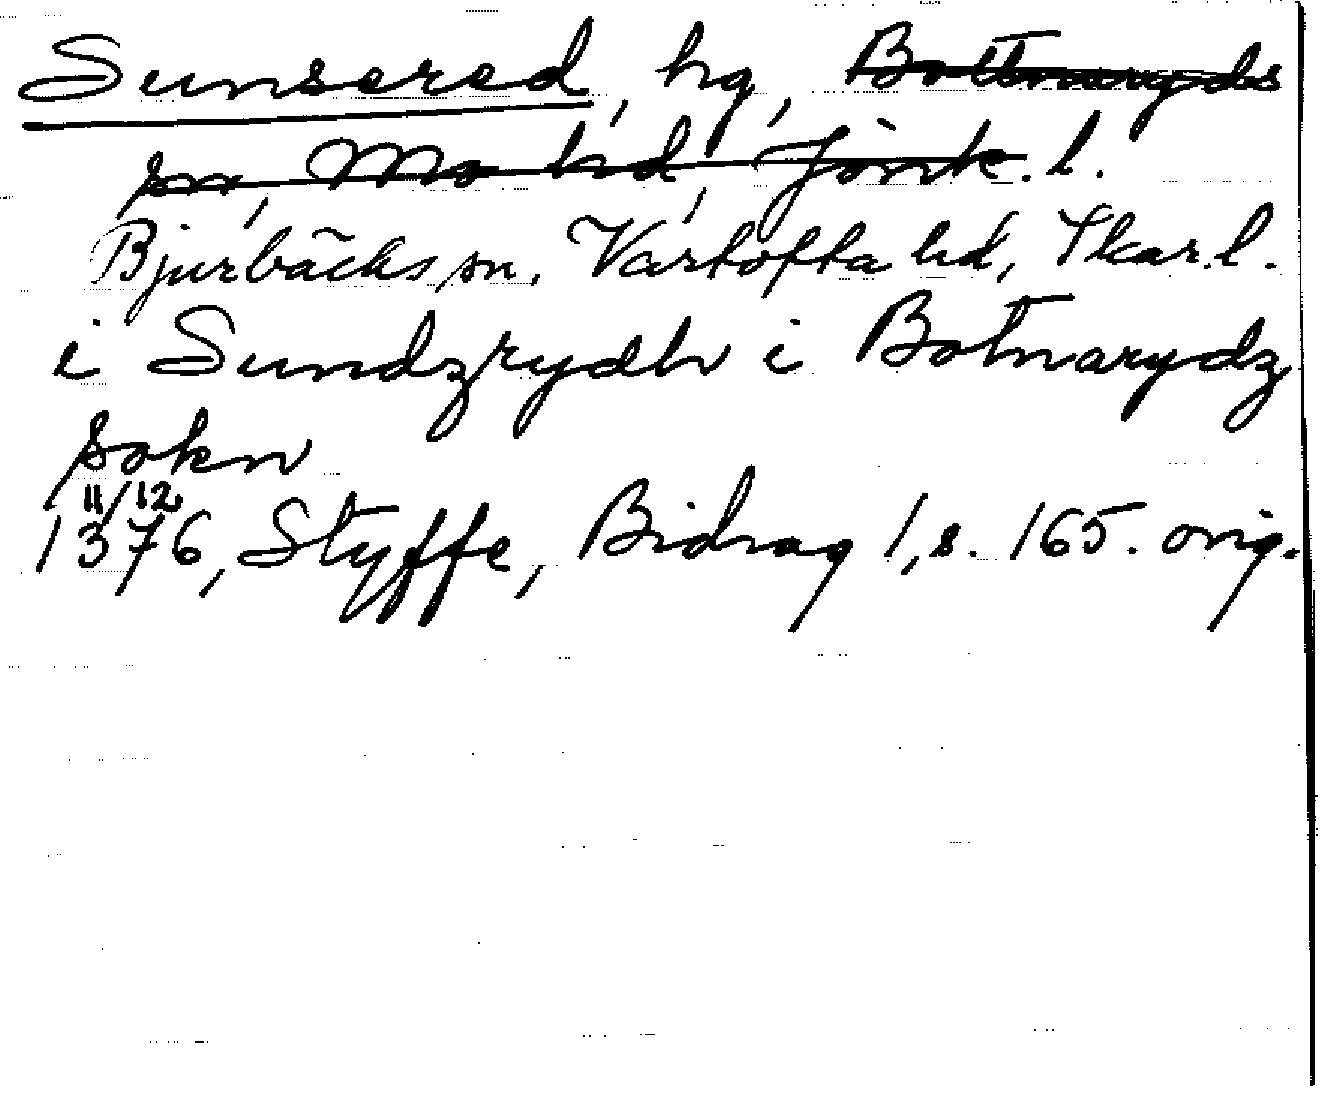 Sunsered, hg, Bottnaryds
sn, Mo hd, Jönk. l.
Bjurbäcks sn. Vartofta hd, Skar. l.
i Sundzrydh i Botnarydz
sokn
11/12
1376, Styffe, Bidrag 1, s. 165. orig.